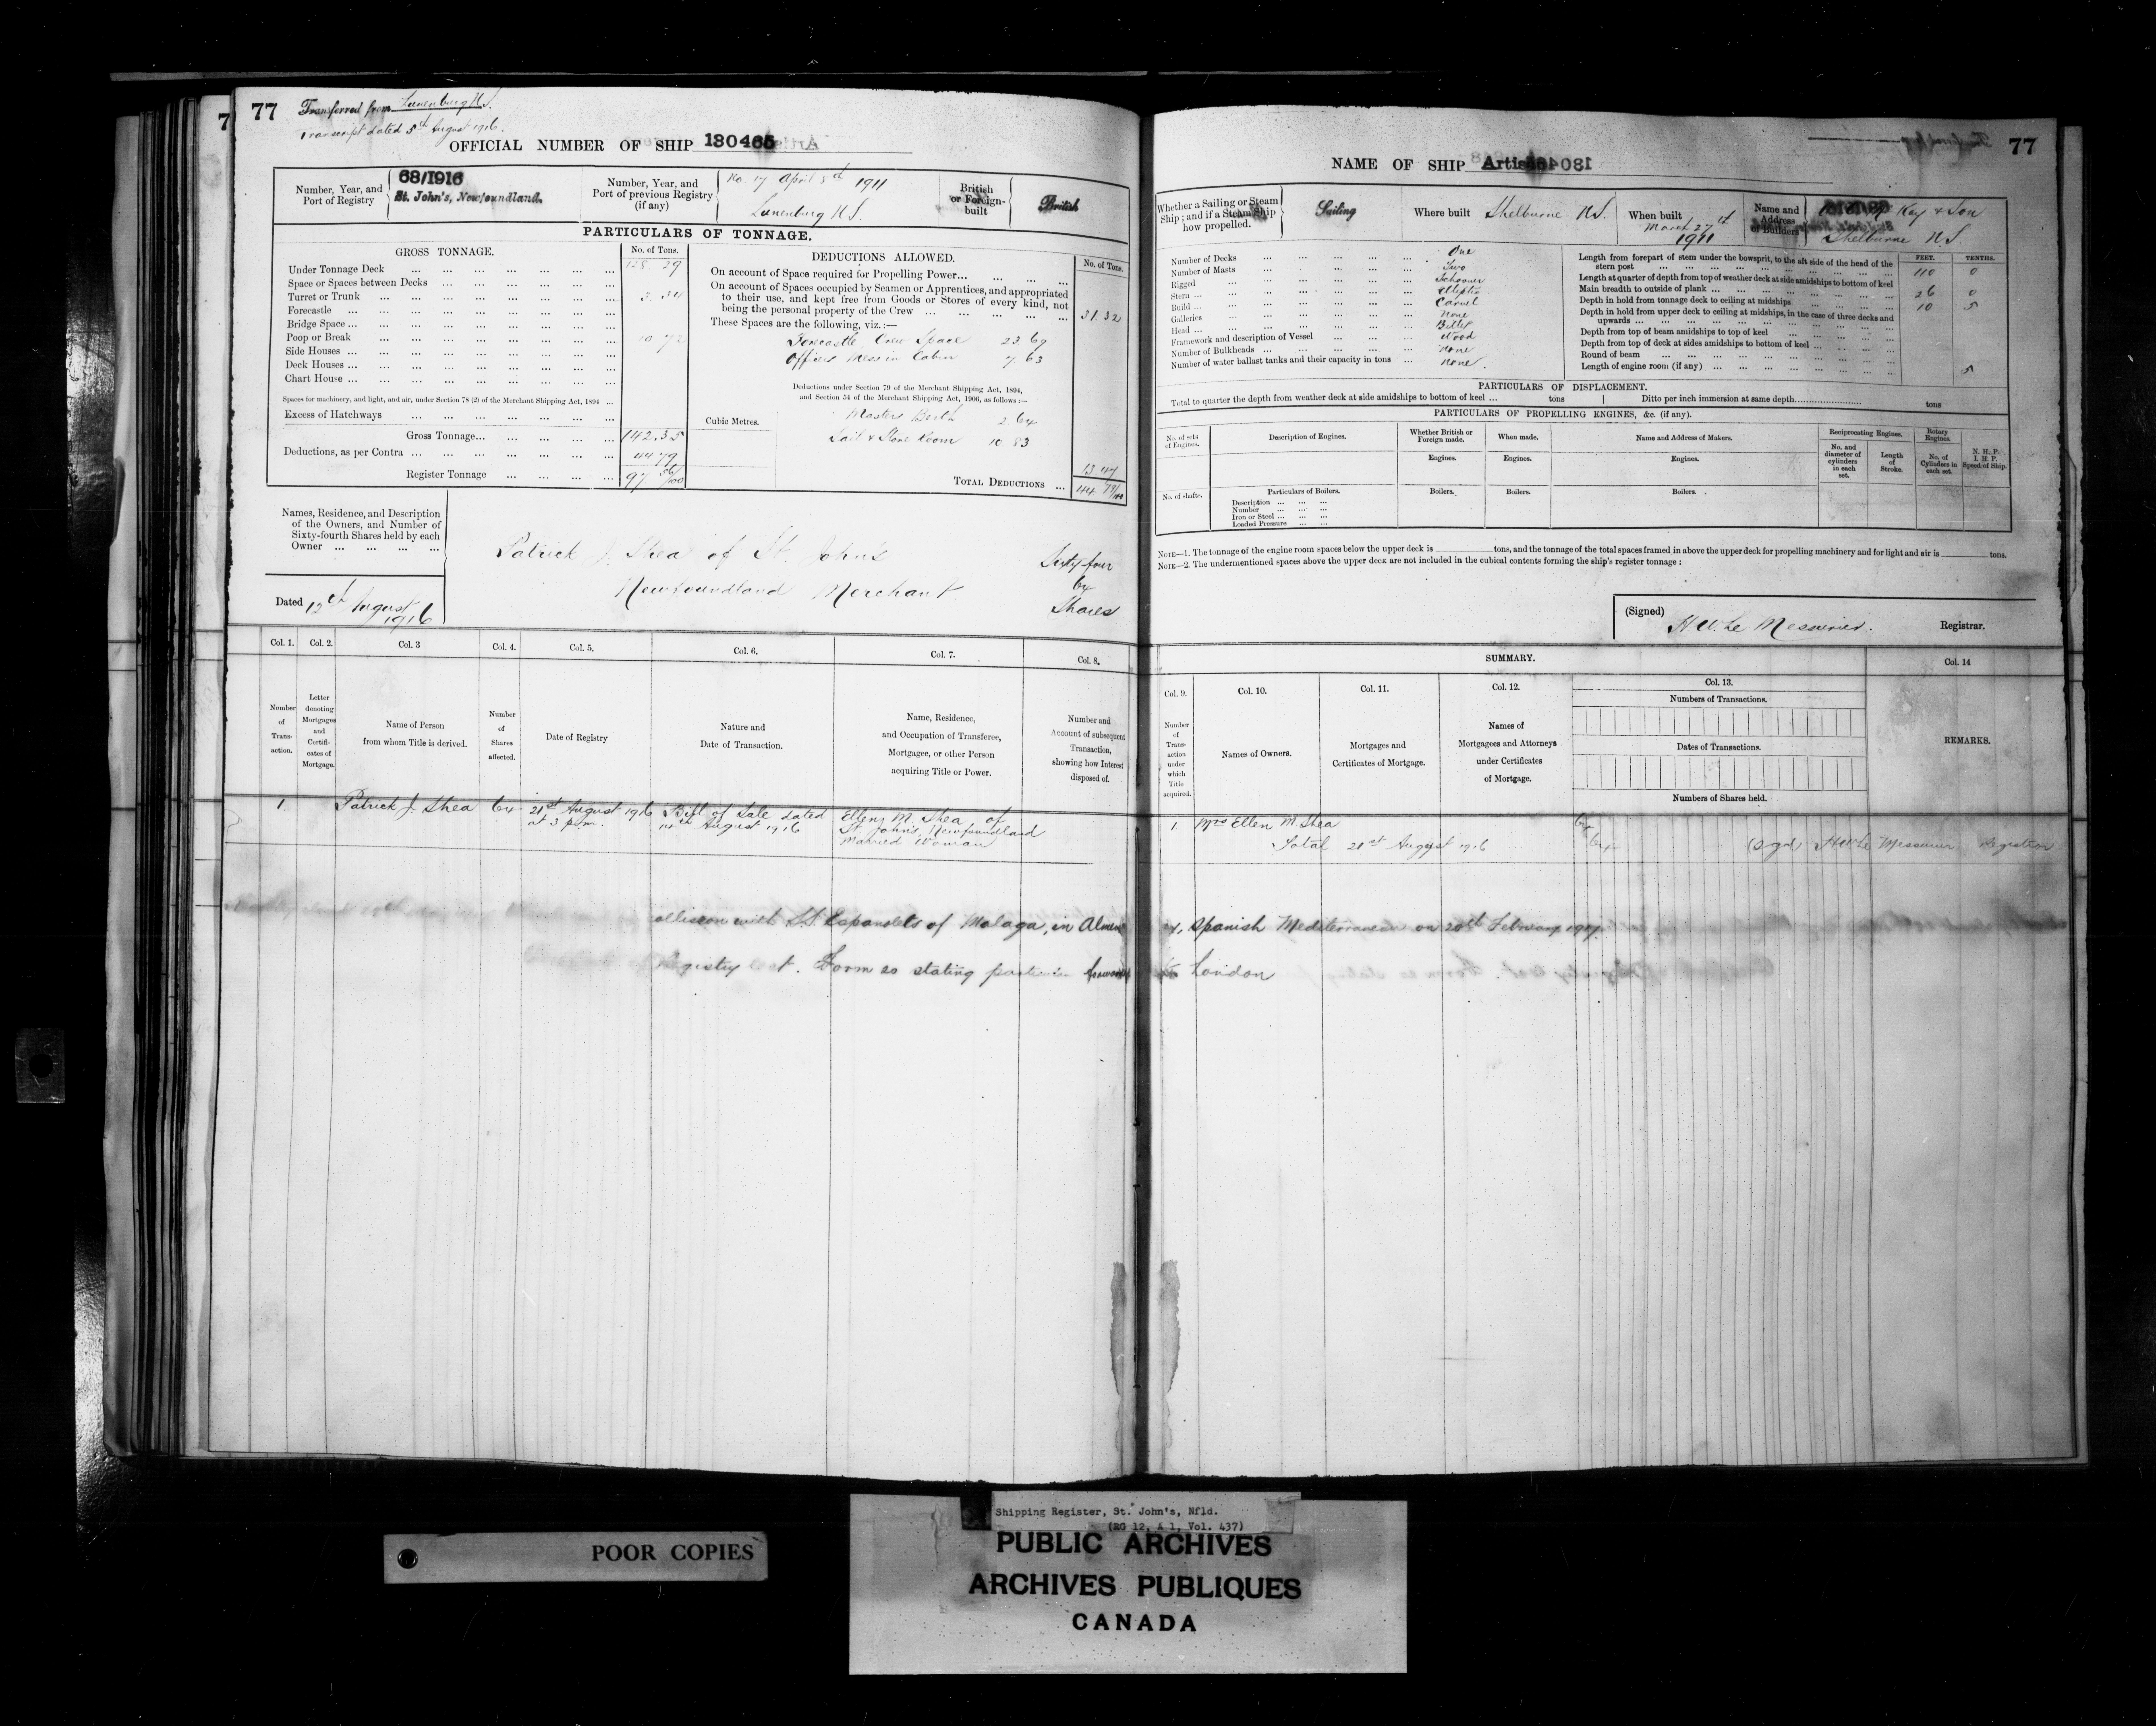 77 Transferred from Lunenburg N.S.
Transcript dated 5th August 1916.
OFFICIAL NUMBER OF SHIP 130465
Number, Year, and
Port of Registry
68/1916
St. John's, Newfoundland.
Number, Year, and
Port of previous Registry
(if any)
No. 17 April 5th 1911
Lunenburg N.S.
British
or Foreign-
built
British
PARTICULARS OF TONNAGE.
GROSS TONNAGE.
No. of Tons.
Under Tonnage Deck 128.29
Space or Spaces between Decks
Turret or Trunk 3.34
Forecastle
Bridge Space
Poop or Break 10 72
Side Houses
Deck Houses
Chart House
Spaces for machinery, and light, and air, under Section 78 (2) of the Merchant Shipping Act, 1894
Excess of Hatchways
Gross Tonnage 142.35
Deductions, as per Contra 44 79
Register Tonnage 97. 56/100
DEDUCTIONS ALLOWED.
No. of Tons.
On account of Space required for Propelling Power
On account of Spaces occupied by Seamen or Apprentices, and appropriated
to their use, and kept free from Goods or Stores of every kind, not
being the personal property of the Crew 31.32
These Spaces are the following, viz.:—
Forecastle, Crew Space 23.69
Officers Mess in Cabin 7.63
Deductions under Section 79 of the Merchant Shipping Act, 1894,
and Section 54 of the Merchant Shipping Act, 1906, as follows:—
Cubic Metres.
Masters Berth 2 64
Sail & Store Room 10 83
13.47
TOTAL DEDUCTIONS 44 79/100
Names, Residence, and Description
of the Owners, and Number of
Sixty-fourth Shares held by each
Owner
Patrick J. Shea of St. John's
Newfoundland Merchant.
Sixty-four
64
Shares
Dated 12th August
1916
Col. 1.
Col. 2.
Col. 3
Col. 4.
Col. 5.
Col. 6.
Col. 7.
Col. 8.
Number
of
Trans-
action.
Letter
denoting
Mortgages
and
Certifi-
cates of
Mortgage.
Name of Person
from whom Title is derived.
Number
of
Shares
affected.
Date of Registry
Nature and
Date of Transaction.
Name, Residence,
and Occupation of Transferee,
Mortgagee, or other Person
acquiring Title or Power.
Number and
Account of subsequent
Transaction,
showing how Interest
disposed of.
1. Patrick J. Shea 64 21st August 1916 Bill of Sale dated Ellen M. Shea of
at 3 p.m. 14th August 1916 St. John's, Newfoundland
Married Woman
77
NAME OF SHIP Artis
Whether a Sailing or Steam
Ship; and if a Steam Ship
how propelled.
Sailing
Where built Shelburne N.S.
When built
March 27th
1911
Name and
Address
of Builders
Kay & Son
Shelburne N.S.
Number of Decks One
Number of Masts Two
Rigged Schooner
Stern Elliptic
Build Carvel
Galleries None
Head Billet
Framework and description of Vessel Wood
Number of Bulkheads None
Number of water ballast tanks and their capacity in tons None.
FEET. TENTHS.
Length from forepart of stem under the bowsprit, to the aft side of the head of the
stern post 110 0
Length at quarter of depth from top of weather deck at side amidships to bottom of keel
Main breadth to outside of plank 26 0
Depth in hold from tonnage deck to ceiling at midships 10 5
Depth in hold from upper deck to ceiling at midships, in the case of three decks and
upwards
Depth from top of beam amidships to top of keel
Depth from top of deck at sides amidships to bottom of keel
Round of beam 5
Length of engine room (if any)
PARTICULARS OF DISPLACEMENT.
Total to quarter the depth from weather deck at side amidships to bottom of keel ... tons
Ditto per inch immersion at same depth tons
PARTICULARS OF PROPELLING ENGINES, &c. (if any).
No. of sets
of Engines.
Description of Engines.
Whether British or
Foreign made.
When made.
Name and Address of Makers.
Reciprocating Engines.
Rotary
Engines
Engines.
Engines.
Engines.
No. and
diameter of
cylinders
in each
set.
Length
of
Stroke.
No. of
Cylinders in
each set.
N. H. P.
I. H. P.
Speed of Ship.
No. of shafts.
Particulars of Boilers.
Description
Number
Iron or Steel
Loaded Pressure
Boilers.
Boilers.
Boilers.
NOTE—1. The tonnage of the engine room spaces below the upper deck is tons, and the tonnage of the total spaces framed in above the upper deck for propelling machinery and for light and air is tons.
NOTE—2. The undermentioned spaces above the upper deck are not included in the cubical contents forming the ship's register tonnage:
(Signed) H.W. Le Messurier. Registrar.
SUMMARY.
Col. 9.
Col. 10.
Col. 11.
Col. 12.
Col. 13.
Col. 14
Number
of
Trans-
action
under
which
Title
acquired.
Names of Owners.
Mortgages and
Certificates of Mortgage.
Names of
Mortgagees and Attorneys
under Certificates
of Mortgage.
Numbers of Transactions.
Dates of Transactions.
Numbers of Shares held.
REMARKS.
1 Mrs Ellen M. Shea 64
Total 21st August 1916 64 (sgd) H.W. Le Messurier Registrar
ollision with S.S. of Malaga, in Spanish Mediterranean on 20th February 1917.
Registry . Form 20 stating London
Shipping Register, St. John's, Nfld.
(RG 12, A 1, Vol. 437)
POOR COPIES
PUBLIC ARCHIVES
ARCHIVES PUBLIQUES
CANADA